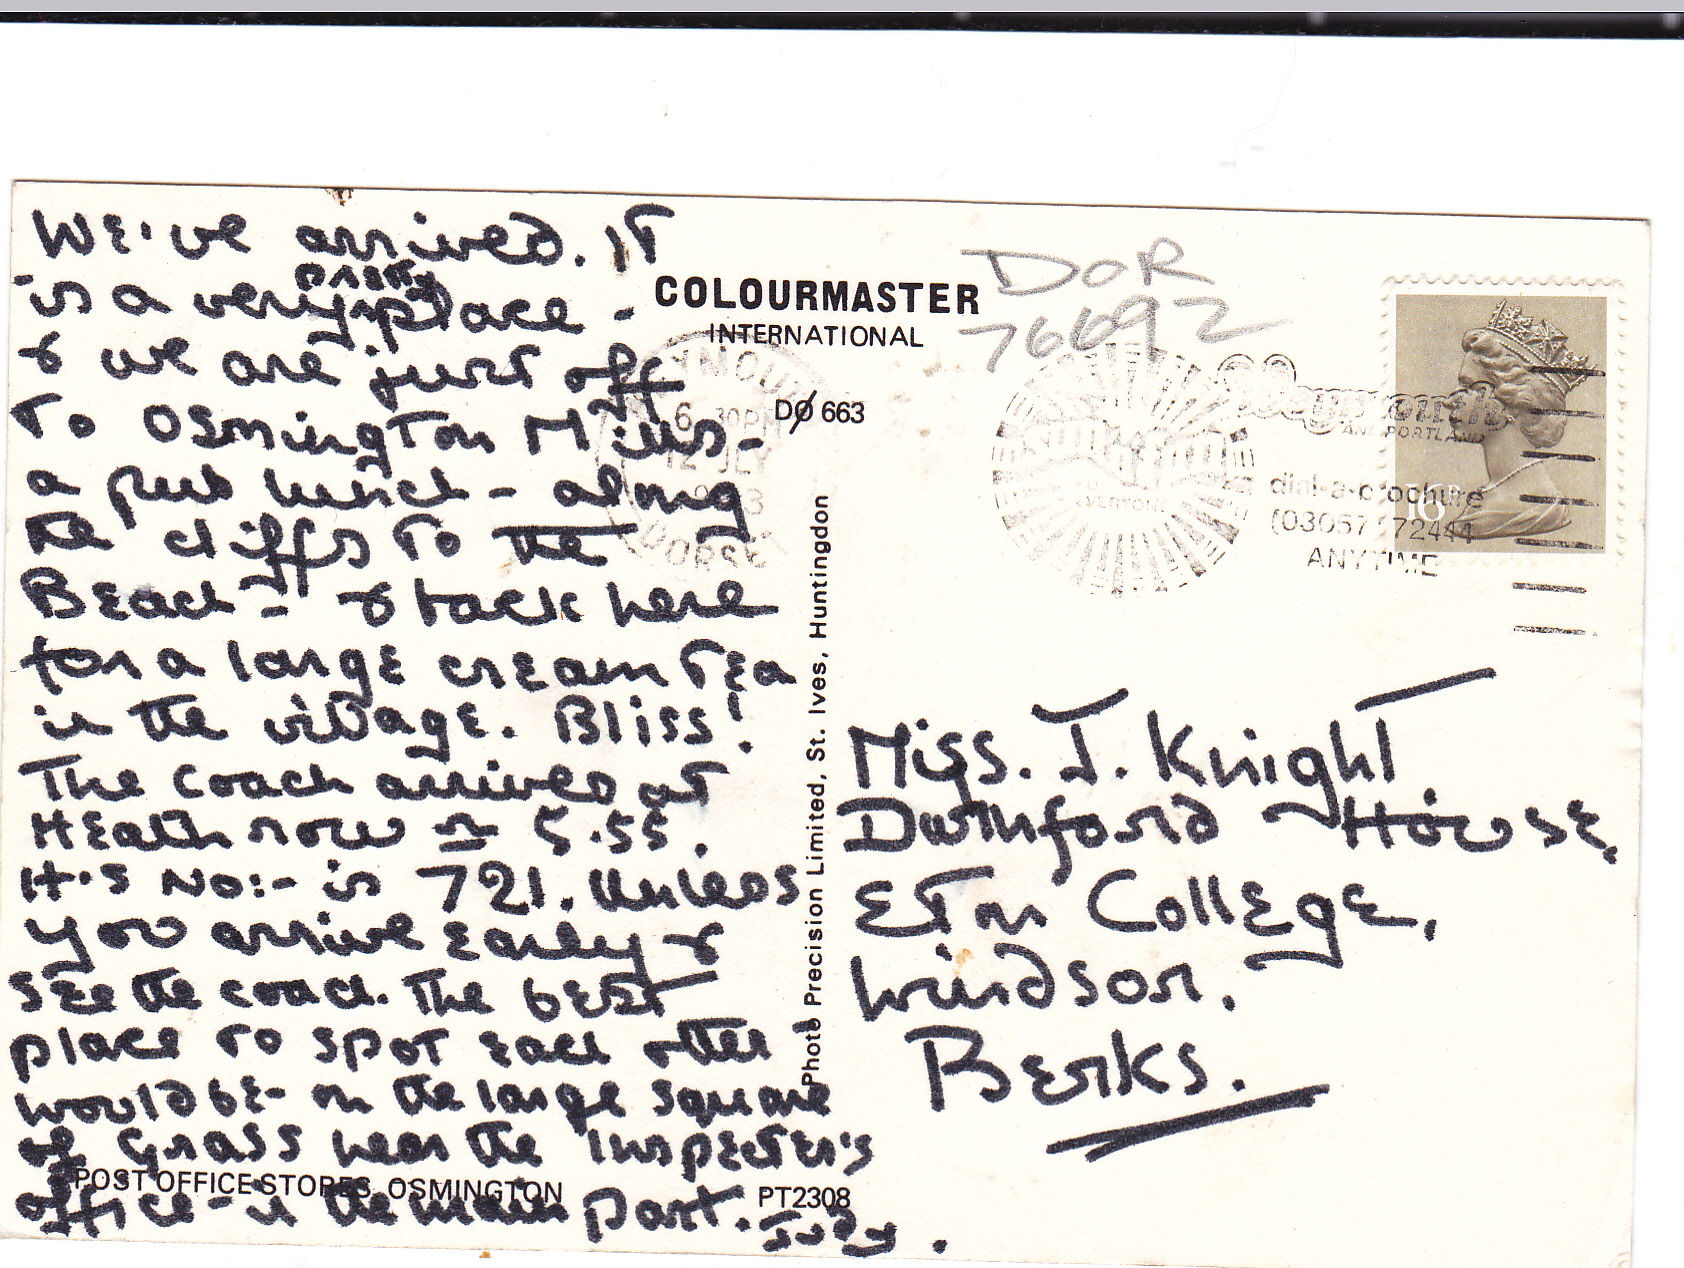 We've arrived. It
is a very pretty place -
& we are just off
to Osmington Mills -
a pub lunch - along
the cliffs to the
Beach - & back here
for a large cream tea
in the village. Bliss!
The coach arrives at
Heath now = 5.55.
H.S No:- is 721. Unless
you arrive early &
see the coach. The best
place to spot each other
would be - on the large square
of Grass near the Inspector's
office - in the main part. Judy.
COLOURMASTER
INTERNATIONAL
DO 663
Photo Precision Limited, St. Ives, Huntingdon
POST OFFICE STORES, OSMINGTON
PT2308
DOR
76692
WEYMOUTH
6 30PM
12 JLY
DORSET
EVERYONE
Weymouth
AND PORTLAND
dial-a-brochure
(03057) 72444
ANYTIME
16P
Miss. J. Knight
Durnford House,
Eton College,
Windsor.
Berks.